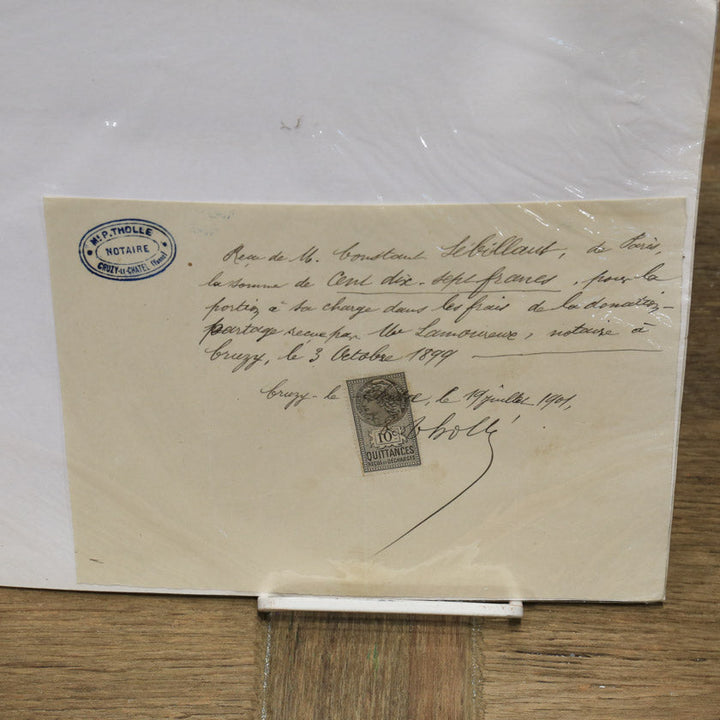 Mᵉ P. THOLLE
NOTAIRE
CRUZY-LE-CHATEL (Yonne)
Reçu de M. Constant Sébillaut, de Paris,
la somme de Cent dix-sept francs, pour la
portion à sa charge dans les frais de la donation-
partage reçue par Me Lamoureux, notaire à
Cruzy, le 3 Octobre 1899
Cruzy-le-, le 19 juillet 1901,
Tholle
10c
QUITTANCES
REÇUS ET DÉCHARGES